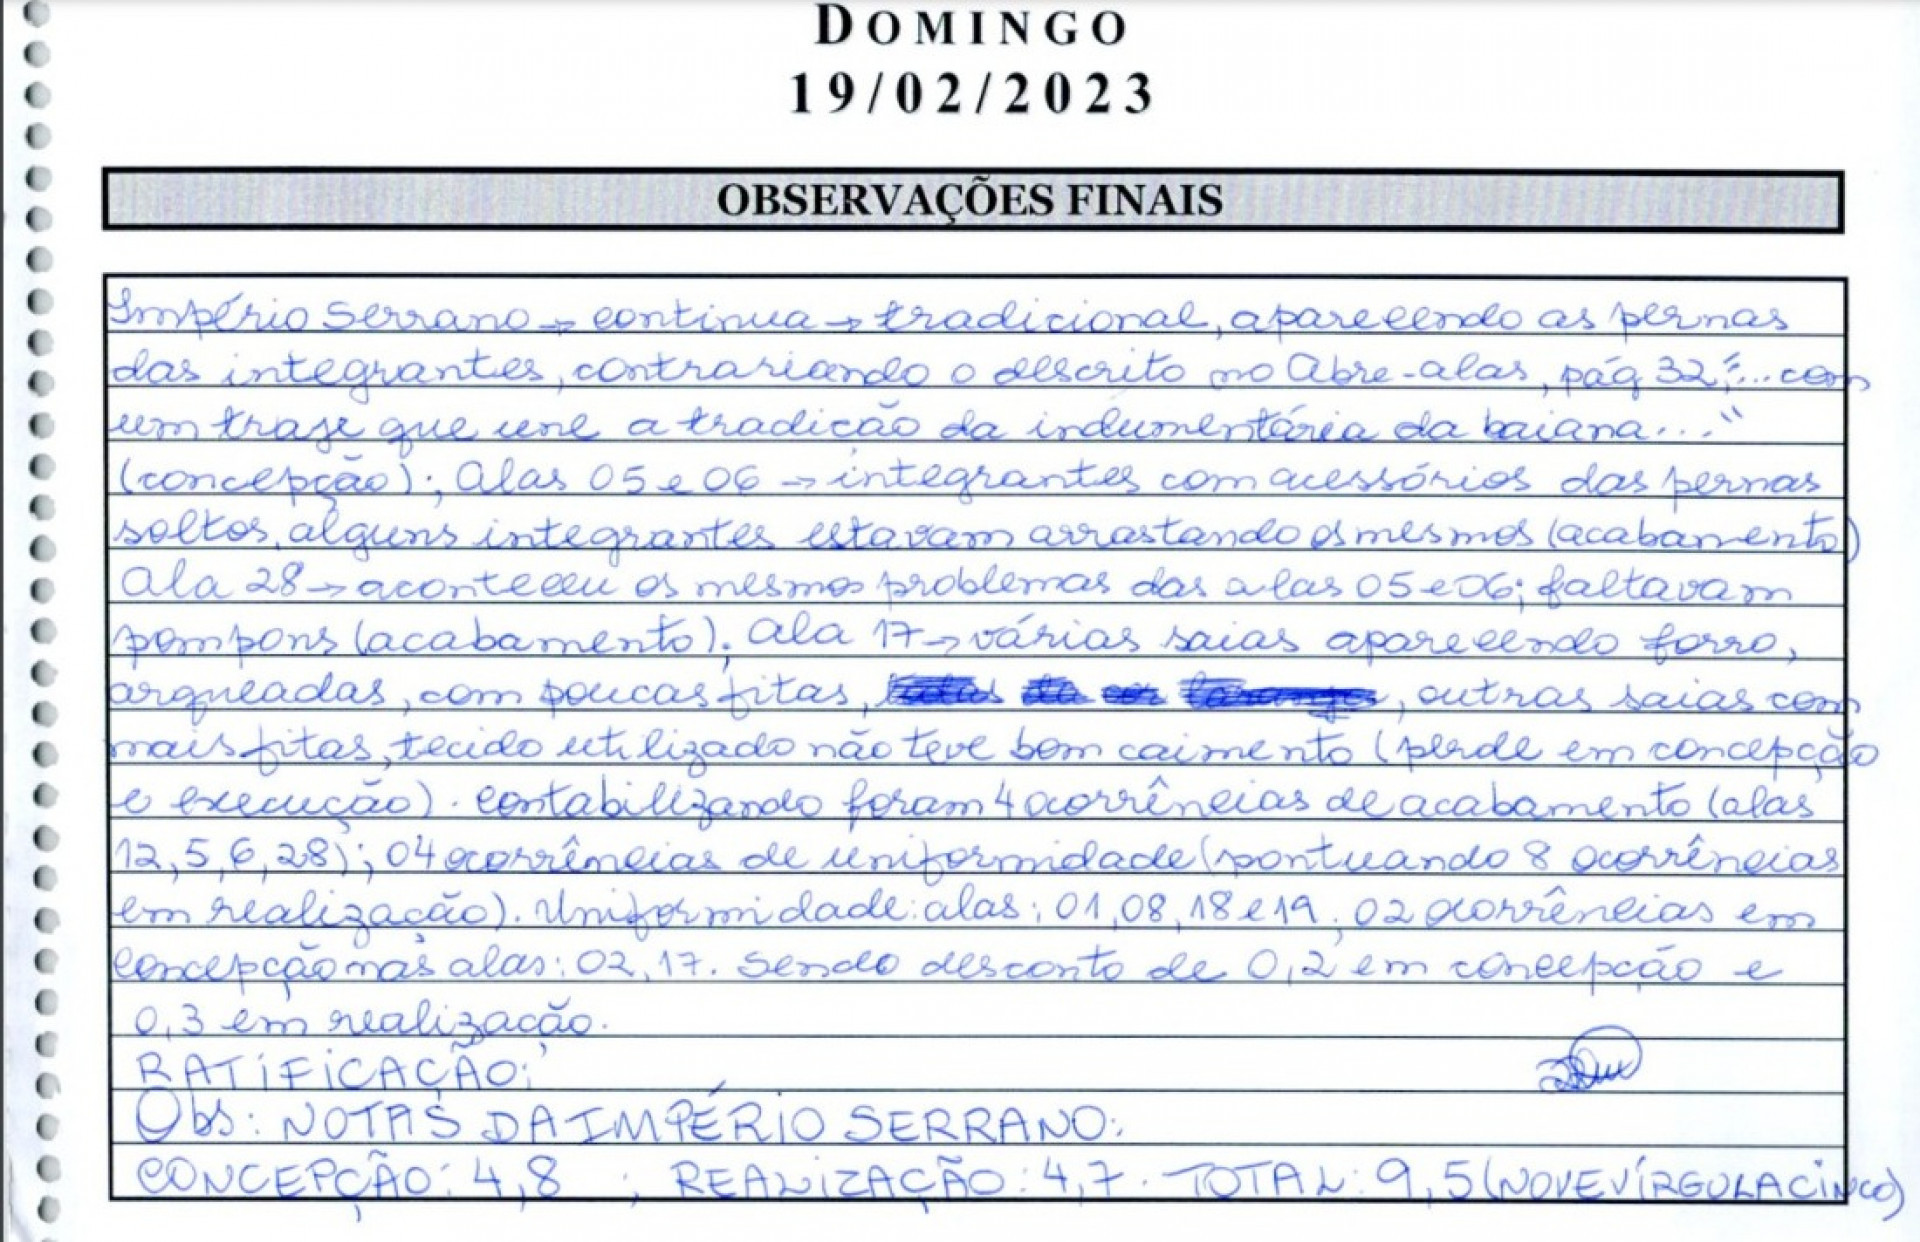 DOMINGO
19/02/2023
OBSERVAÇÕES FINAIS
Império Serrano → continua → tradicional, aparecendo as pernas
das integrantes, contrariando o descrito no Abre-alas, pág 32 "... com
um traje que une a tradição da indumentária da baiana..."
(concepção); Alas 05 e 06 → integrantes com acessórios das pernas
soltos, alguns integrantes estavam arrastando os mesmos (acabamento)
Ala 28 → aconteceu os mesmos problemas das alas 05 e 06; faltavam
pompons (acabamento); Ala 17 → várias saias aparecendo forro,
arqueadas, com poucas fitas, , outras saias com
mais fitas, tecido utilizado não teve bom caimento (perde em concepção
e execução). Contabilizando foram 4 ocorrências de acabamento (alas
12, 5, 6, 28); 04 ocorrências de uniformidade (pontuando 8 ocorrências
em realização). Uniformidade: alas: 01, 08, 18 e 19. 02 ocorrências em
concepção nas alas: 02, 17. Sendo desconto de 0,2 em concepção e
0,3 em realização.
RATIFICAÇÃO:
Obs: NOTAS DA IMPÉRIO SERRANO:
CONCEPÇÃO: 4,8 ; REALIZAÇÃO: 4,7. TOTAL: 9,5 (NOVE VÍRGULA CINCO)